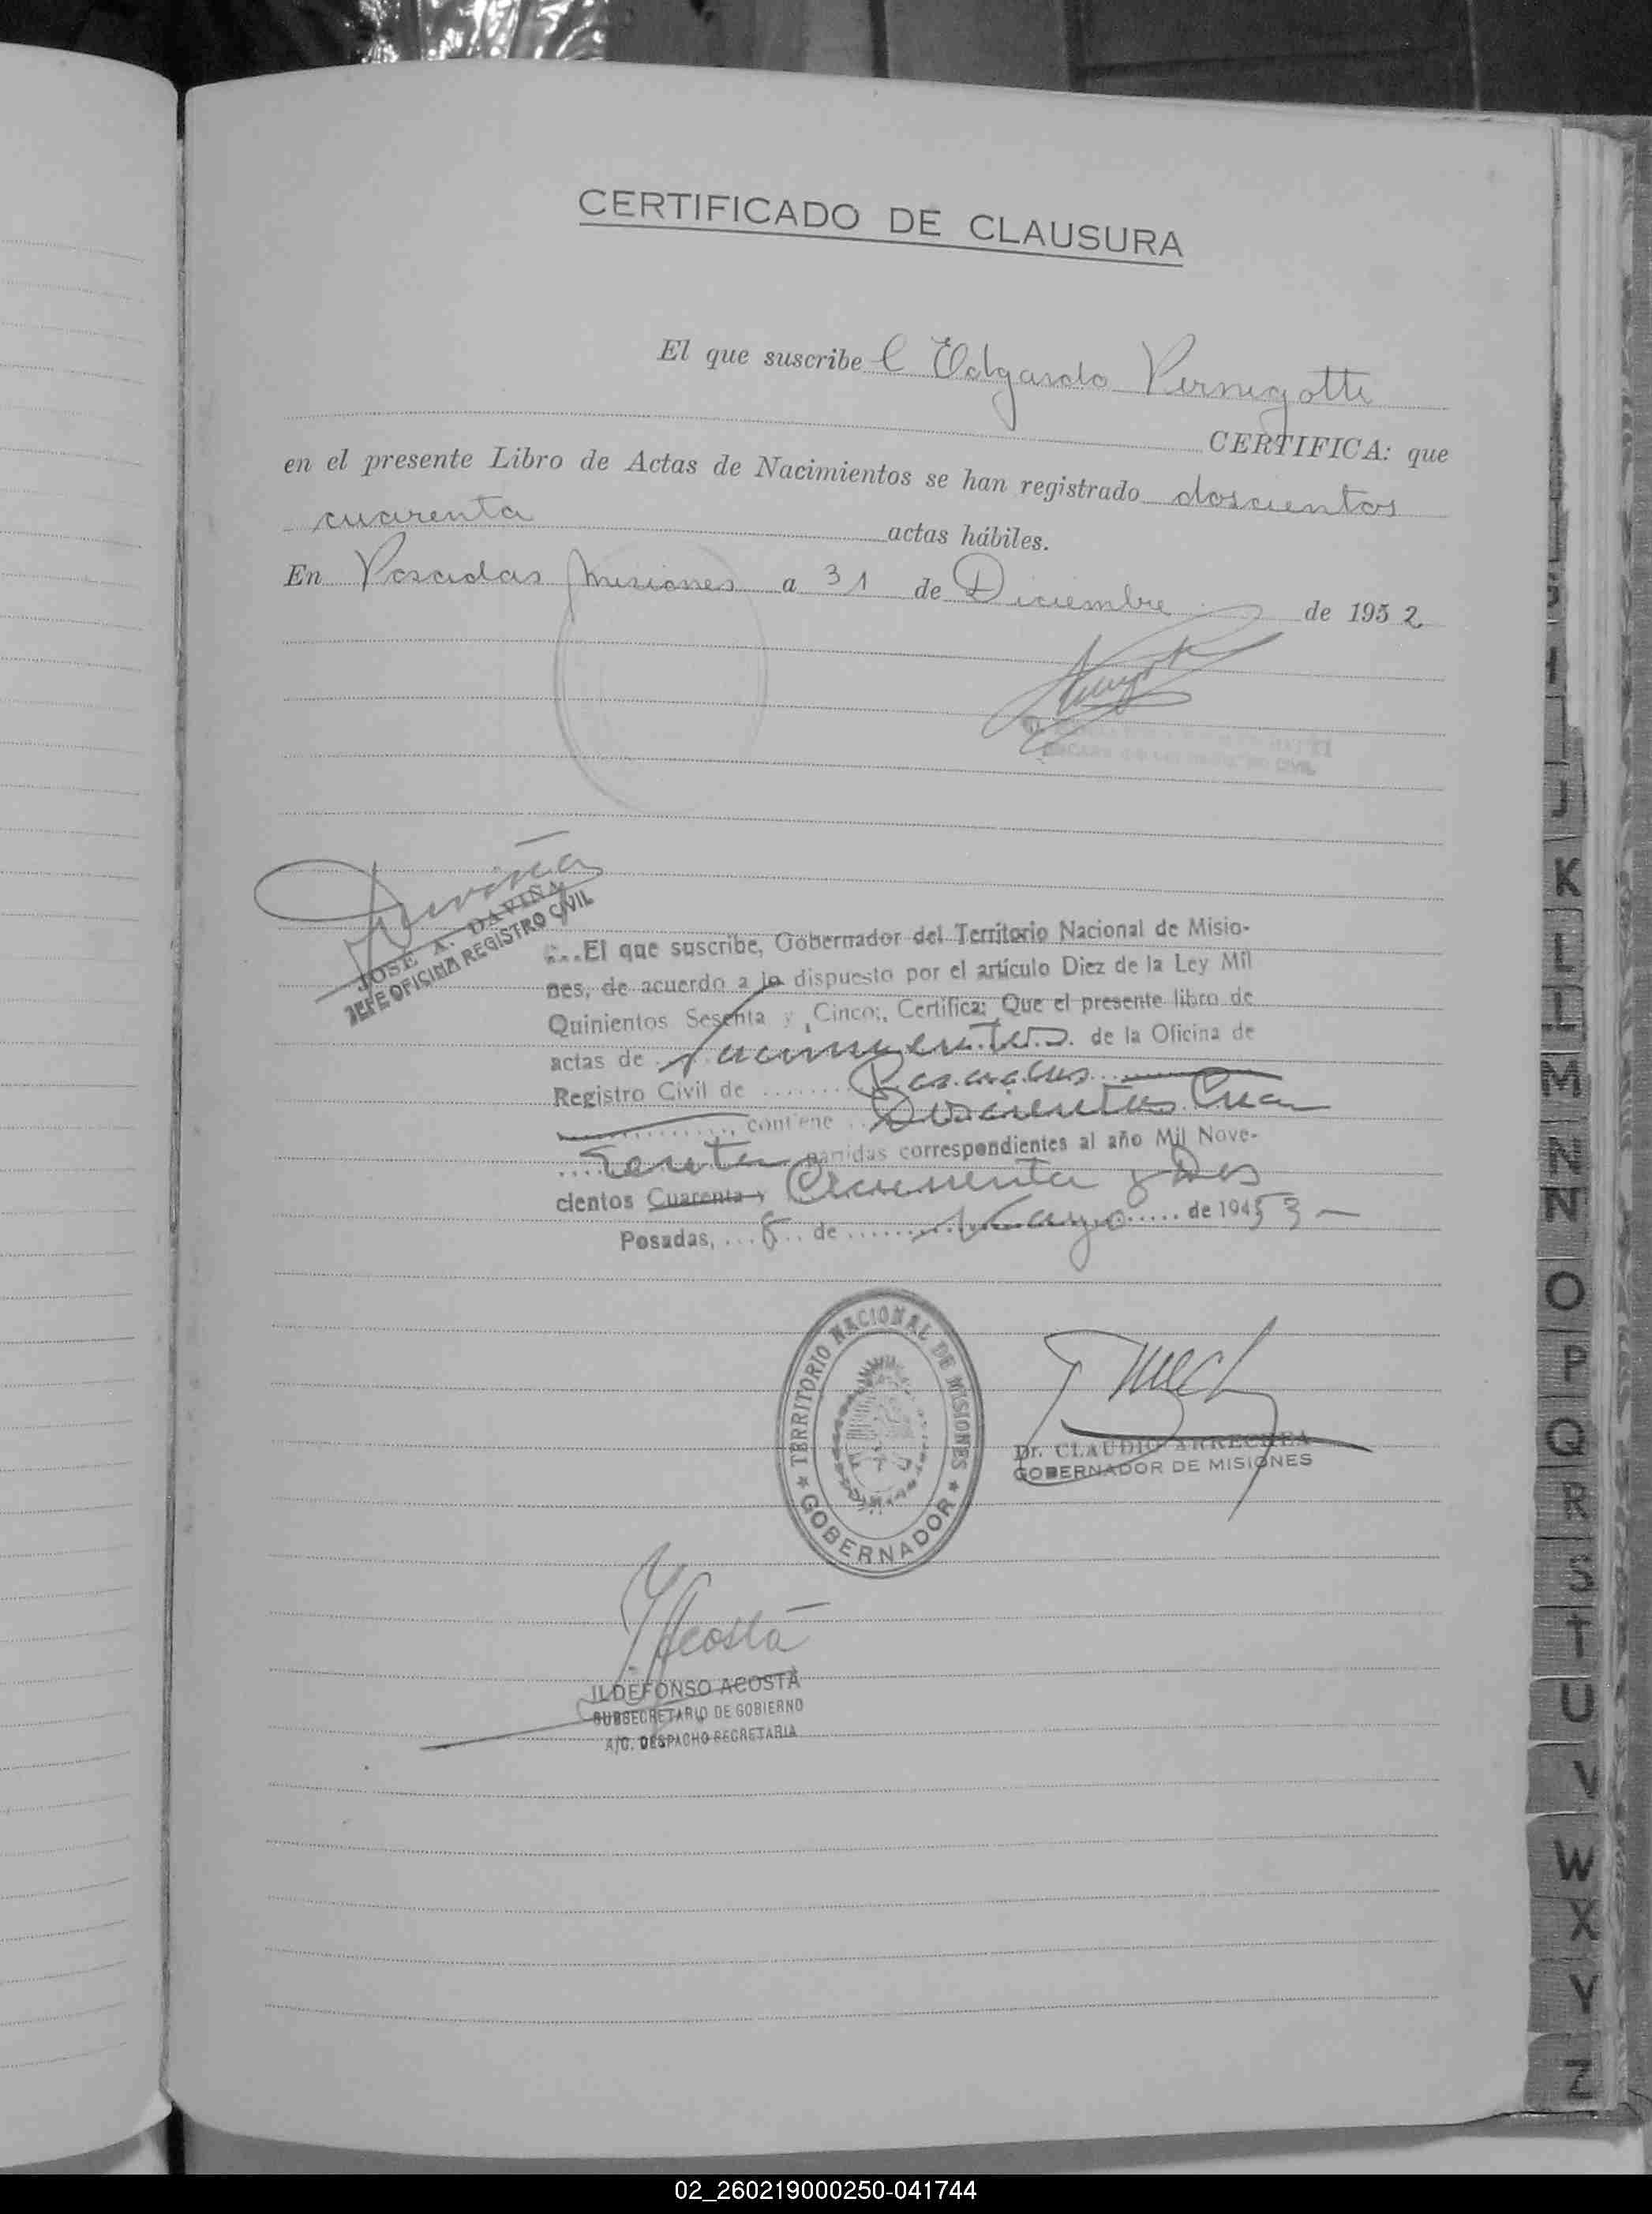 CERTIFICADO DE CLAUSURA
El que suscribe C Edgardo Pernigotti
CERTIFICA: que
en el presente Libro de Actas de Nacimientos se han registrado doscientos
cuarenta actas hábiles.
En Posadas Misiones a 31 de Diciembre de 1952
CIVIL
Daviña
JOSE A. DAVIÑA
JEFE OFICINA REGISTRO CIVIL
:...El que suscribe, Gobernador del Territorio Nacional de Misio-
nes, de acuerdo a lo dispuesto por el artículo Diez de la Ley Mil
Quinientos Sesenta y Cinco:, Certifica: Que el presente libro de
actas de Nacimientos de la Oficina de
Registro Civil de ....... Posadas
contiene .. Doscientos Cua
renta partidas correspondientes al año Mil Nove-
cientos Cuarenta y Cincuenta y Dos
Posadas, ... 8 .. de ...... Mayo ..... de 19453 -
TERRITORIO NACIONAL DE MISIONES
GOBERNADOR
Dr. CLAUDIO ARRECHEA
GOBERNADOR DE MISIONES
I. Acosta
ILDEFONSO ACOSTA
SUBSECRETARIO DE GOBIERNO
A/C. DESPACHO SECRETARIA
J
K
L
LL
M
N
Ñ
O
P
Q
R
S
T
U
V
W
X
Y
Z
02_260219000250-041744